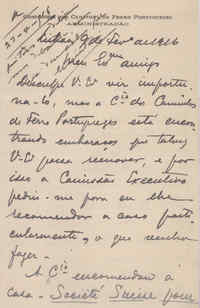 Companhia dos Caminhos de Ferro Portuguezes
ADMINISTRAÇÃO
Lisboa 9 de Fevº de 1916
Meu Exmo amigo
Desculpe V. Exª vir importu-
na-lo, mas a Cª dos Caminhos
de Ferro Portuguezes está encon-
trando embaraços que talvez
V. Exª possa remover, e por
isso a Comissão Executiva
pediu-me para eu lhe
recomendar o caso parti-
cularmente, o que venho
fazer.
A Cª encomendou á
casa - Société Suisse pour